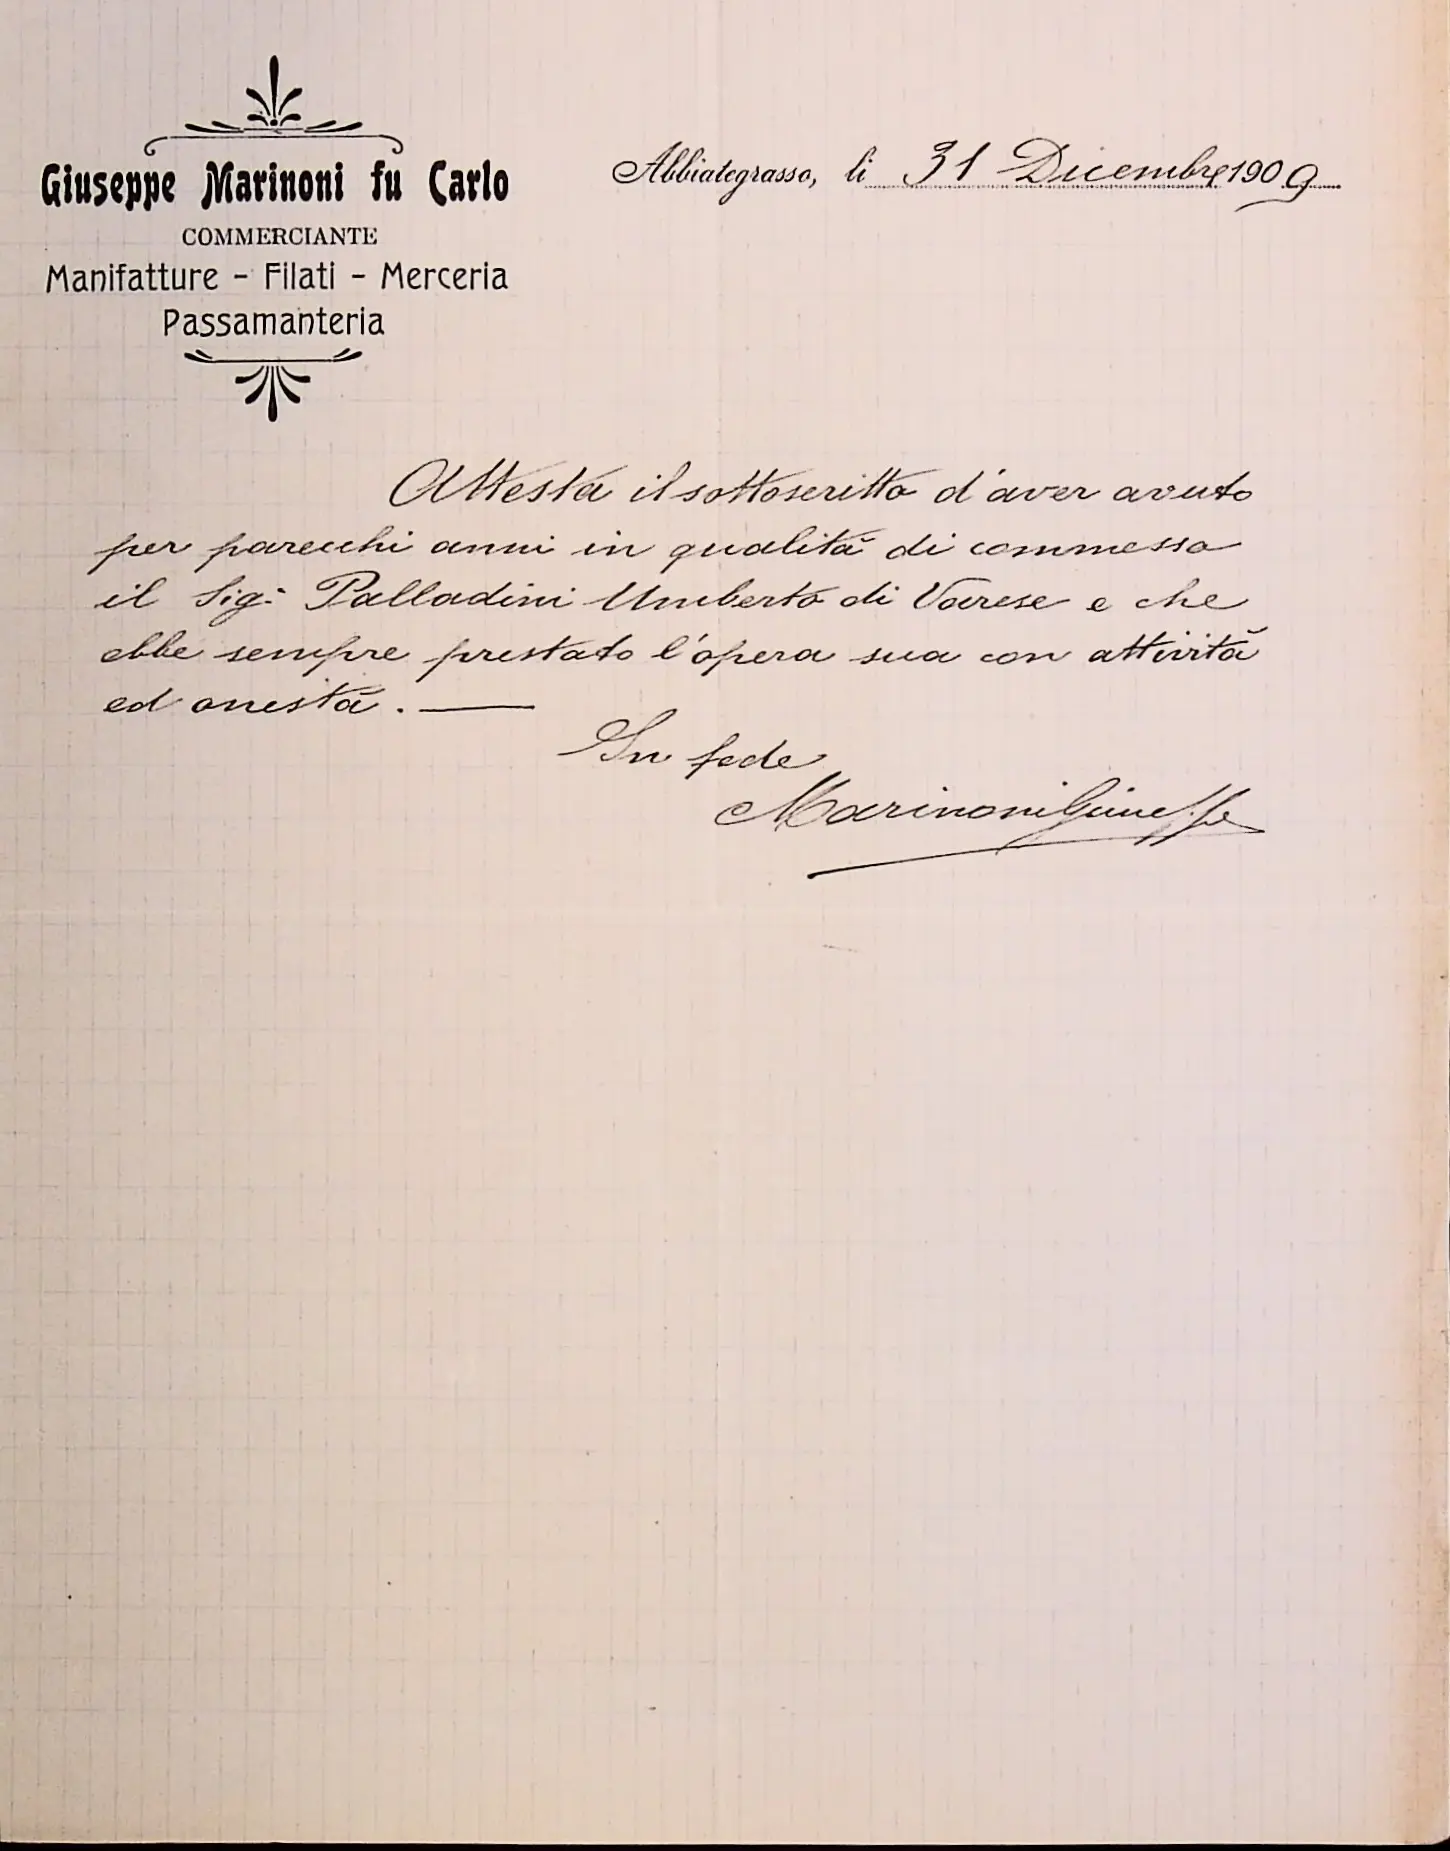 Giuseppe Marinoni fu Carlo
COMMERCIANTE
Manifatture - Filati - Merceria
Passamanteria
Abbiategrasso, li 31 Dicembre 1909
Attesta il sottoscritto d'aver avuto
per parecchi anni in qualità di commesso
il Sig: Palladini Umberto di Varese e che
ebbe sempre prestato l'opera sua con attività
ed onestà. —
In fede
Marinoni Giuseppe